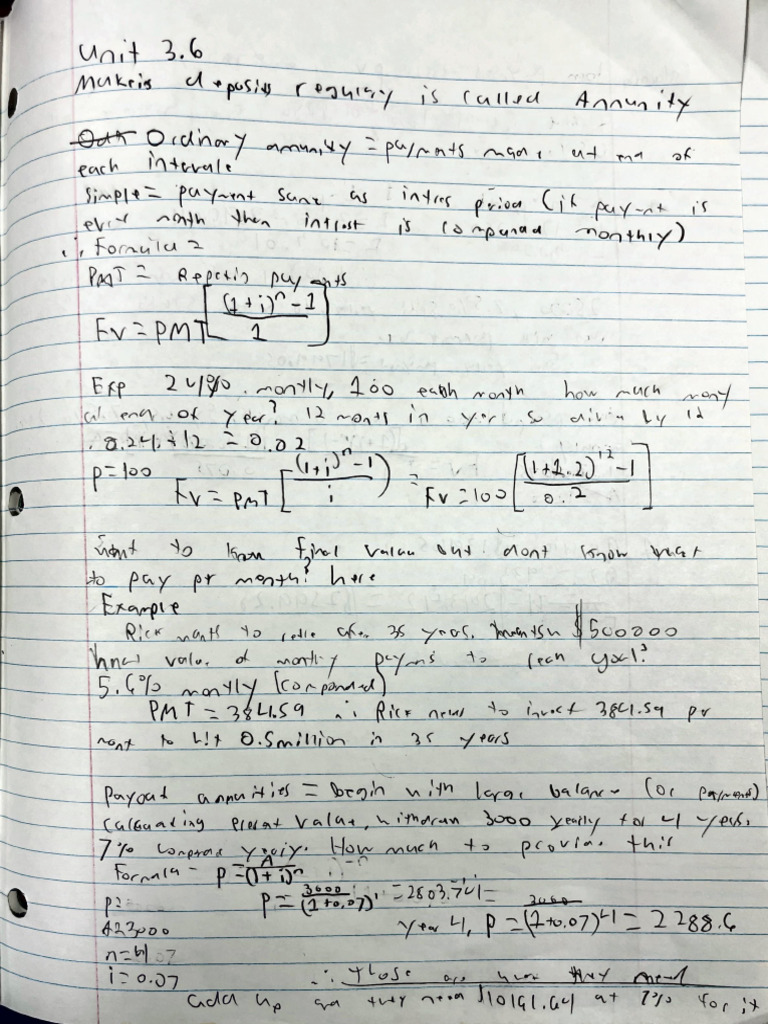 Unit 3.6
Makeis deposits regulary is called Annunity
Ordinary annunity = payments made at end of
each intervale
simple = payment same as intres period (if payment is
ever month then intrest is compunad monthly)
∴ Formula =
PMT = Repetin payments
FV = PMT [ (1+i)^n - 1 / 1 ]
Exp 24%. montly, 100 each month how much mony
at end of year? 12 monts in year so divin by 12
0.24 ÷ 12 = 0.02
p=100 FV = PMT [ (1+i)^n - 1 / i ) = FV = 100 [ (1+1.2)^12 - 1 / 0.2 ]
want to know final value but dont know what
to pay pr month? here
Example
Rick wants to retire after 35 years, $500000
final value of montly paymns to rech goal?
5.6% montly [componded]
PMT = 384.59 ∴ Rick need to invest 384.59 per
mont to hit 0.5million in 35 years
Payout annuities = begin with large balance (or payment)
Calcuating presnt value, withdraw 3000 yearly for 4 years.
7% yeary. How much to provide this
Formula - p = A / (1+i)^n
p= P = 3000 / (1+0.07)^1 = 2803.74
A=3000 year 4, P = 3000 / (1+0.07)^4 = 2288.6
n=4
i=0.07 ∴ those are how they need
add up and they need $10161.64 at 7% for it